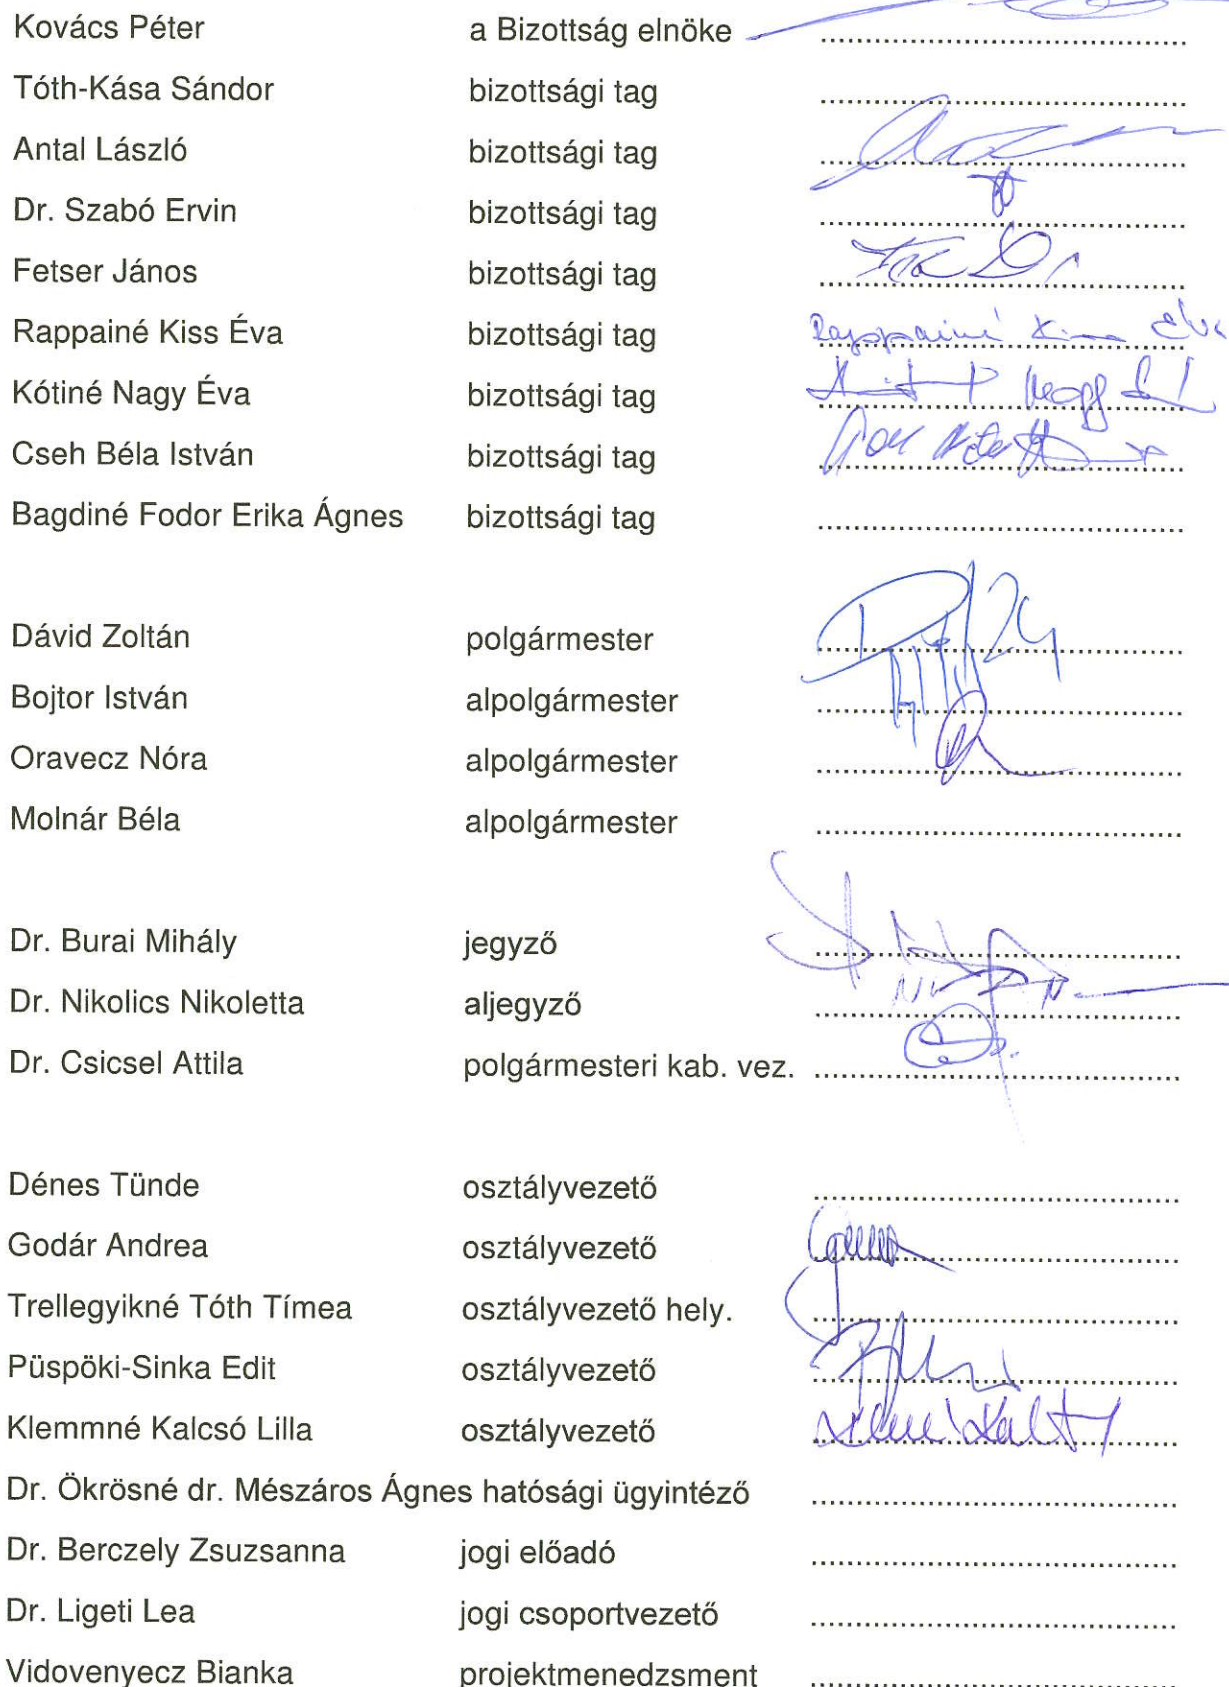 Kovács Péter a Bizottság elnöke
Tóth-Kása Sándor bizottsági tag
Antal László bizottsági tag
Dr. Szabó Ervin bizottsági tag
Fetser János bizottsági tag
Rappainé Kiss Éva bizottsági tag Rappainé Kiss Éva
Kótiné Nagy Éva bizottsági tag Nagy
Cseh Béla István bizottsági tag
Bagdiné Fodor Erika Ágnes bizottsági tag
Dávid Zoltán polgármester
Bojtor István alpolgármester
Oravecz Nóra alpolgármester
Molnár Béla alpolgármester
Dr. Burai Mihály jegyző
Dr. Nikolics Nikoletta aljegyző
Dr. Csicsel Attila polgármesteri kab. vez.
Dénes Tünde osztályvezető
Godár Andrea osztályvezető
Trellegyikné Tóth Tímea osztályvezető hely.
Püspöki-Sinka Edit osztályvezető
Klemmné Kalcsó Lilla osztályvezető
Dr. Ökrösné dr. Mészáros Ágnes hatósági ügyintéző
Dr. Berczely Zsuzsanna jogi előadó
Dr. Ligeti Lea jogi csoportvezető
Vidovenyecz Bianka projektmenedzsment